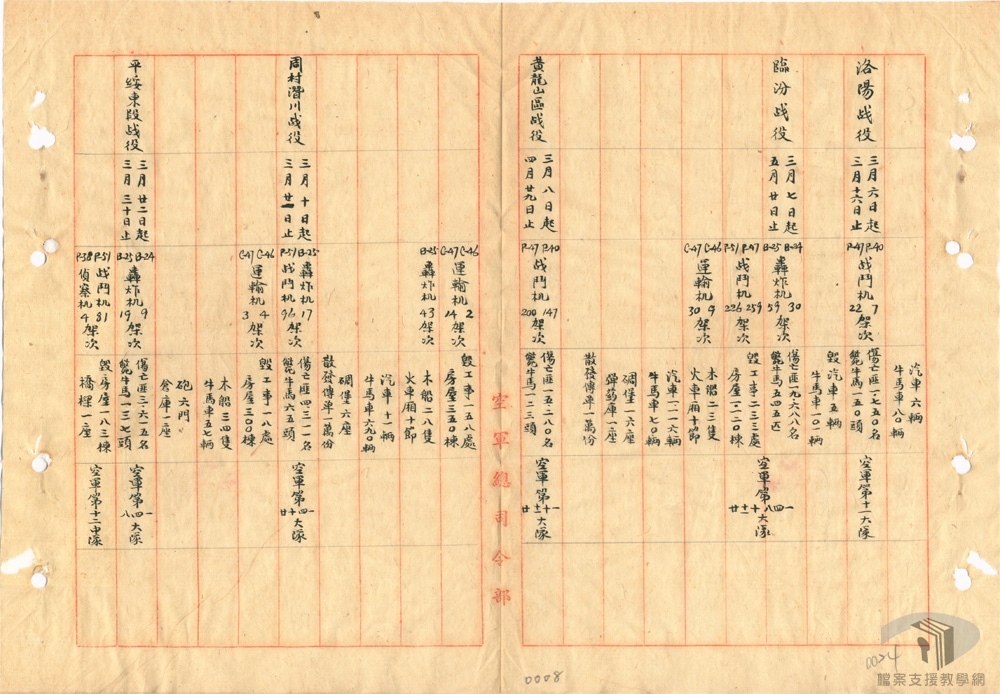 汽車六輛
牛馬車八0輛
洛陽战役
三月六日起
三月十六日止
P-40 战鬥机 7 架次
P-47 22
傷亡匪一七五0名
斃牛馬一五0頭
空軍第十一大隊
毀汽車五輛
牛馬車一0一輛
臨汾战役
三月七日起
五月廿日止
B-24 轟炸机 30 架次
B-25 59
傷亡匪一九六八八名
斃牛馬五四五匹
空軍第一四八十十一廿大隊
P-47 战鬥机 259 架次
P-51 226
毀工事二三三處
房屋一二二0棟
C-46 運輸机 9 架次
C-47 30
木船二三隻
火車廂十節
汽車一二六輛
牛馬車七0輛
碉堡一六座
彈葯庫一座
散發傳單一萬份
黃龍山區战役
三月八日起
四月廿九日止
P-40 战鬥机 147 架次
P-47 200
傷亡匪一五二八0名
斃牛馬一二三頭
空軍第一十十一廿大隊
空軍總司令部
C-46 運輸机 2 架次
C-47 14
毀工事一五八處
房屋三五0棟
B-25 轟炸机 43 架次
木船二八隻
火車廂十節
汽車十一輛
牛馬車六九0輛
碉堡六座
散發傳單一萬份
周村濳川战役
三月十日起
三月廿一日止
B-25 轟炸机 17 架次
P-51 战鬥机 96 架次
傷亡匪四三一一名
斃牛馬六五頭
空軍第一四十廿大隊
C-46 運輸机 4 架次
C-47 3
毀工事一八處
房屋三00棟
木船三四隻
牛馬車五七輛
砲六門
倉庫二座
平綏東段战役
三月廿二日起
三月三十日止
B-24 轟炸机 9 架次
B-25 19
傷亡匪三六一五名
斃牛馬一三七頭
空軍第一四八大隊
P-51 战鬥机 81 架次
P-38 偵察机 4 架次
毀房屋一八三棟
橋樑一座
空軍第十二中隊
0008
0024
檔案支援教學網